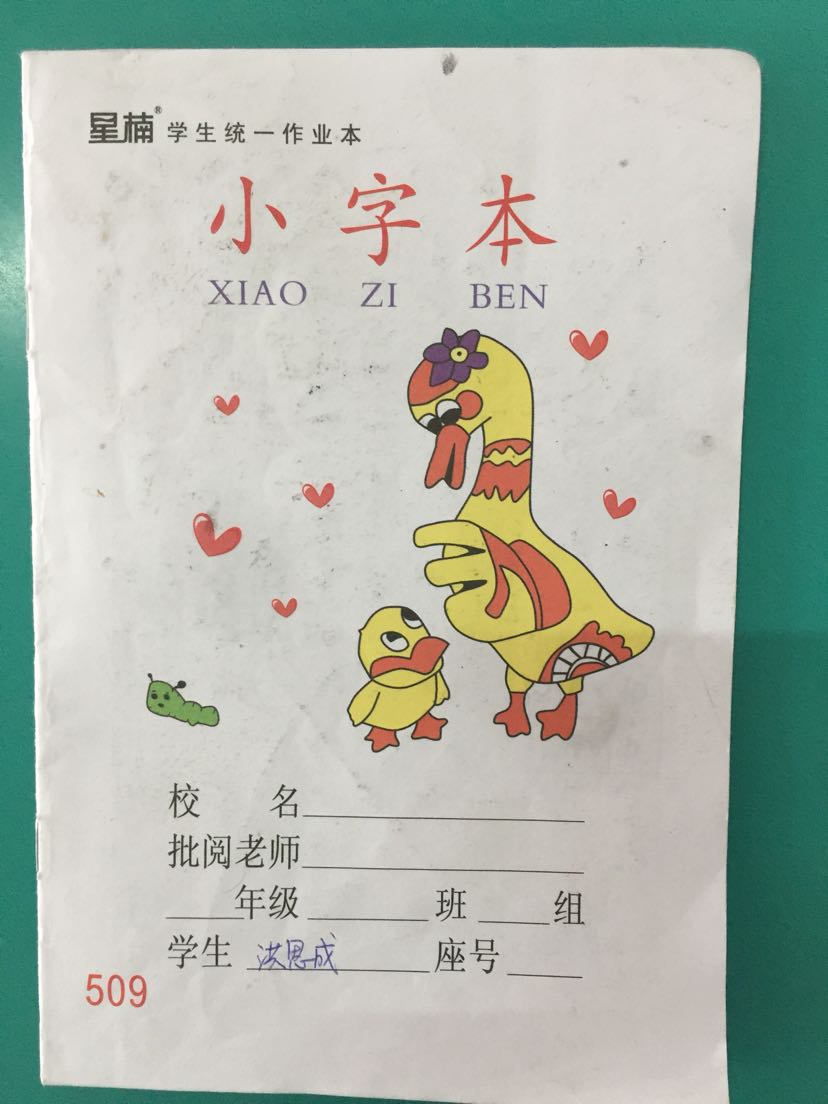 星楠® 学生统一作业本
小字本
XIAO ZI BEN
校 名
批阅老师
年级 班 组
学生 洪恩成 座号
509